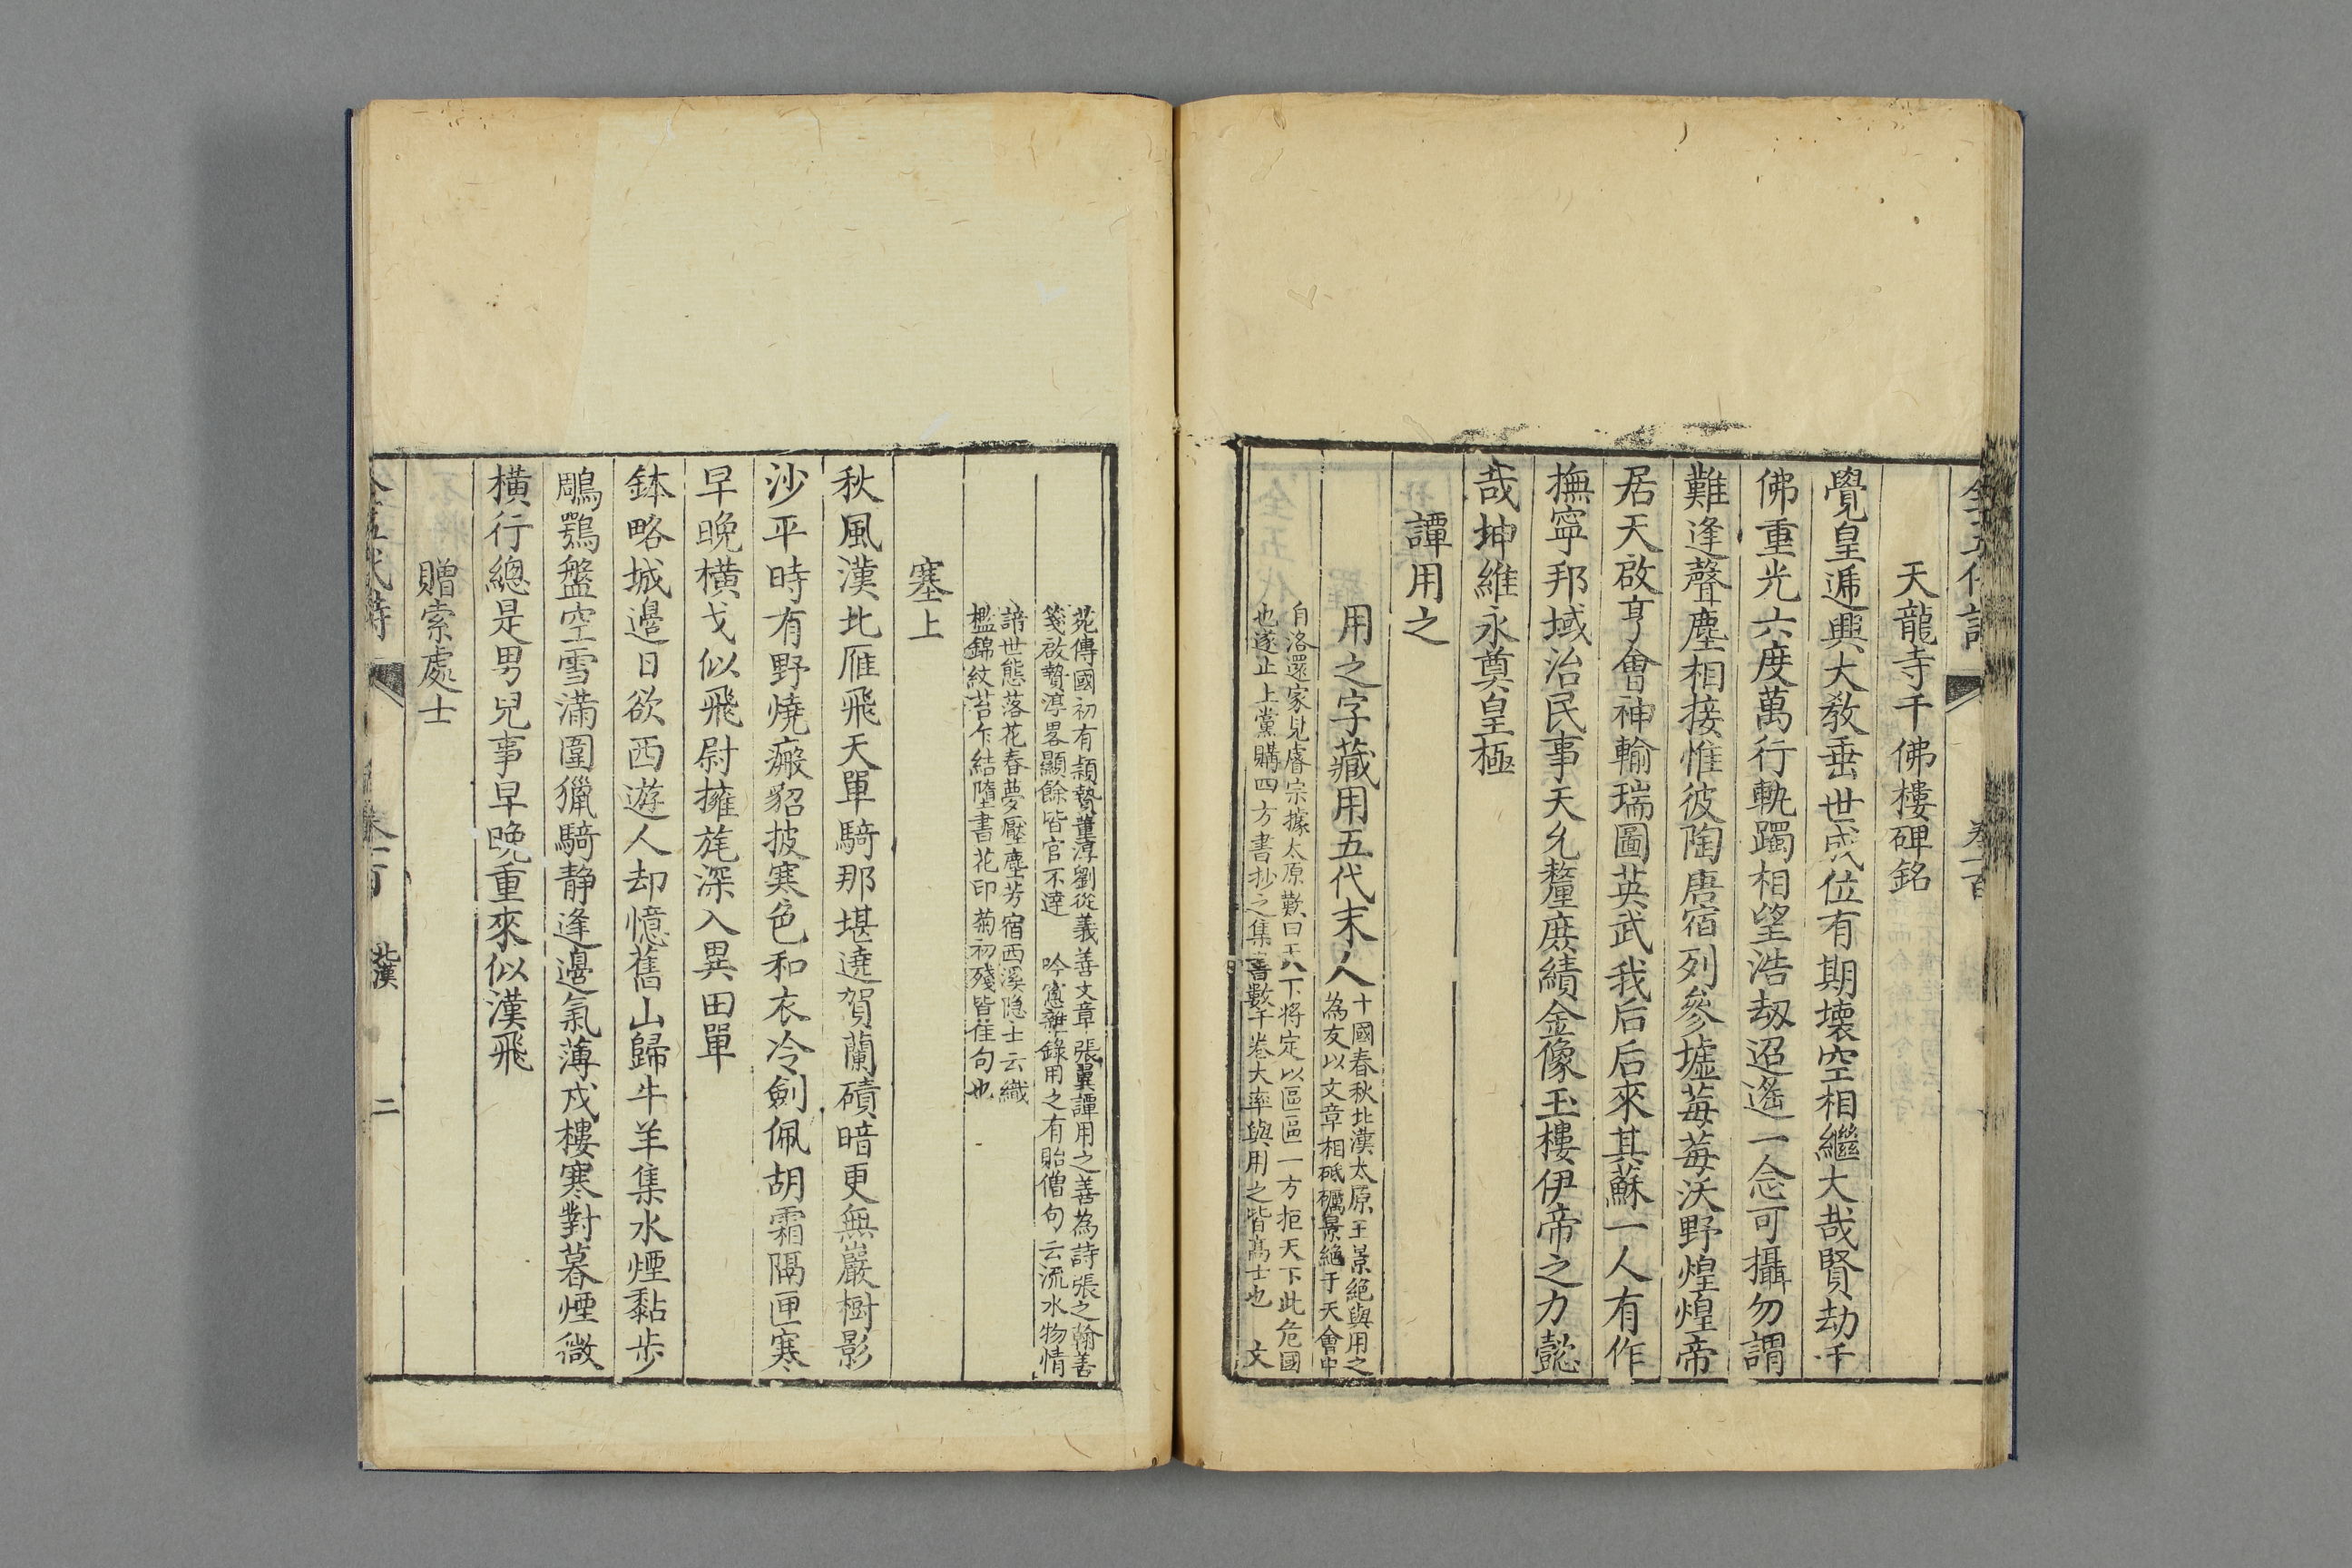 全五代詩 卷一百
天龍寺千佛樓碑銘
覺皇遞興大教垂世成位有期壞空相繼大哉賢劫千
佛重光六度萬行軌躅相望浩刼迢遙一念可攝勿謂
難逢聲塵相接惟彼陶唐宿列參墟莓莓沃野煌煌帝
居天啟亨會神輸瑞圖英武我后后來其蘇一人有作
撫寧邦域治民事天允釐庶績金像玉樓伊帝之力懿
哉坤維永奠皇極
譚用之
用之字藏用五代末人
十國春秋北漢太原王景絕與用之
為友以文章相砥礪景絕于天會中
自洛還家見睿宗據太原歎曰天下將定以區區一方拒天下此危國
也遂止上黨購四方書抄之集書數千卷大率與用之皆高士也 文
苑傳國初有頴贄董淳劉從義善文章張翼譚用之善為詩張之翰善
箋啟贄淳畧顯餘皆官不達 吟窻雜錄用之有貽僧句云流水物情
諳世態落花春夢壓塵芳宿西溪隐士云織
檻錦紋苔乍結墮書花印菊初殘皆佳句也
塞上
秋風漢北雁飛天單騎那堪遶賀蘭磧暗更無巖樹影
沙平時有野燒瘢貂披寒色和衣冷劍佩胡霜隔匣寒
早晚橫戈似飛尉擁旄深入異田單
鈢略城邉日欲西遊人却憶舊山歸牛羊集水煙黏步
鵰鶚盤空雪滿圍獵騎靜逢邉氣薄戍樓寒對暮煙微
橫行總是男兒事早晚重來似漢飛
贈索處士
全五代詩 卷一百 北漢 二